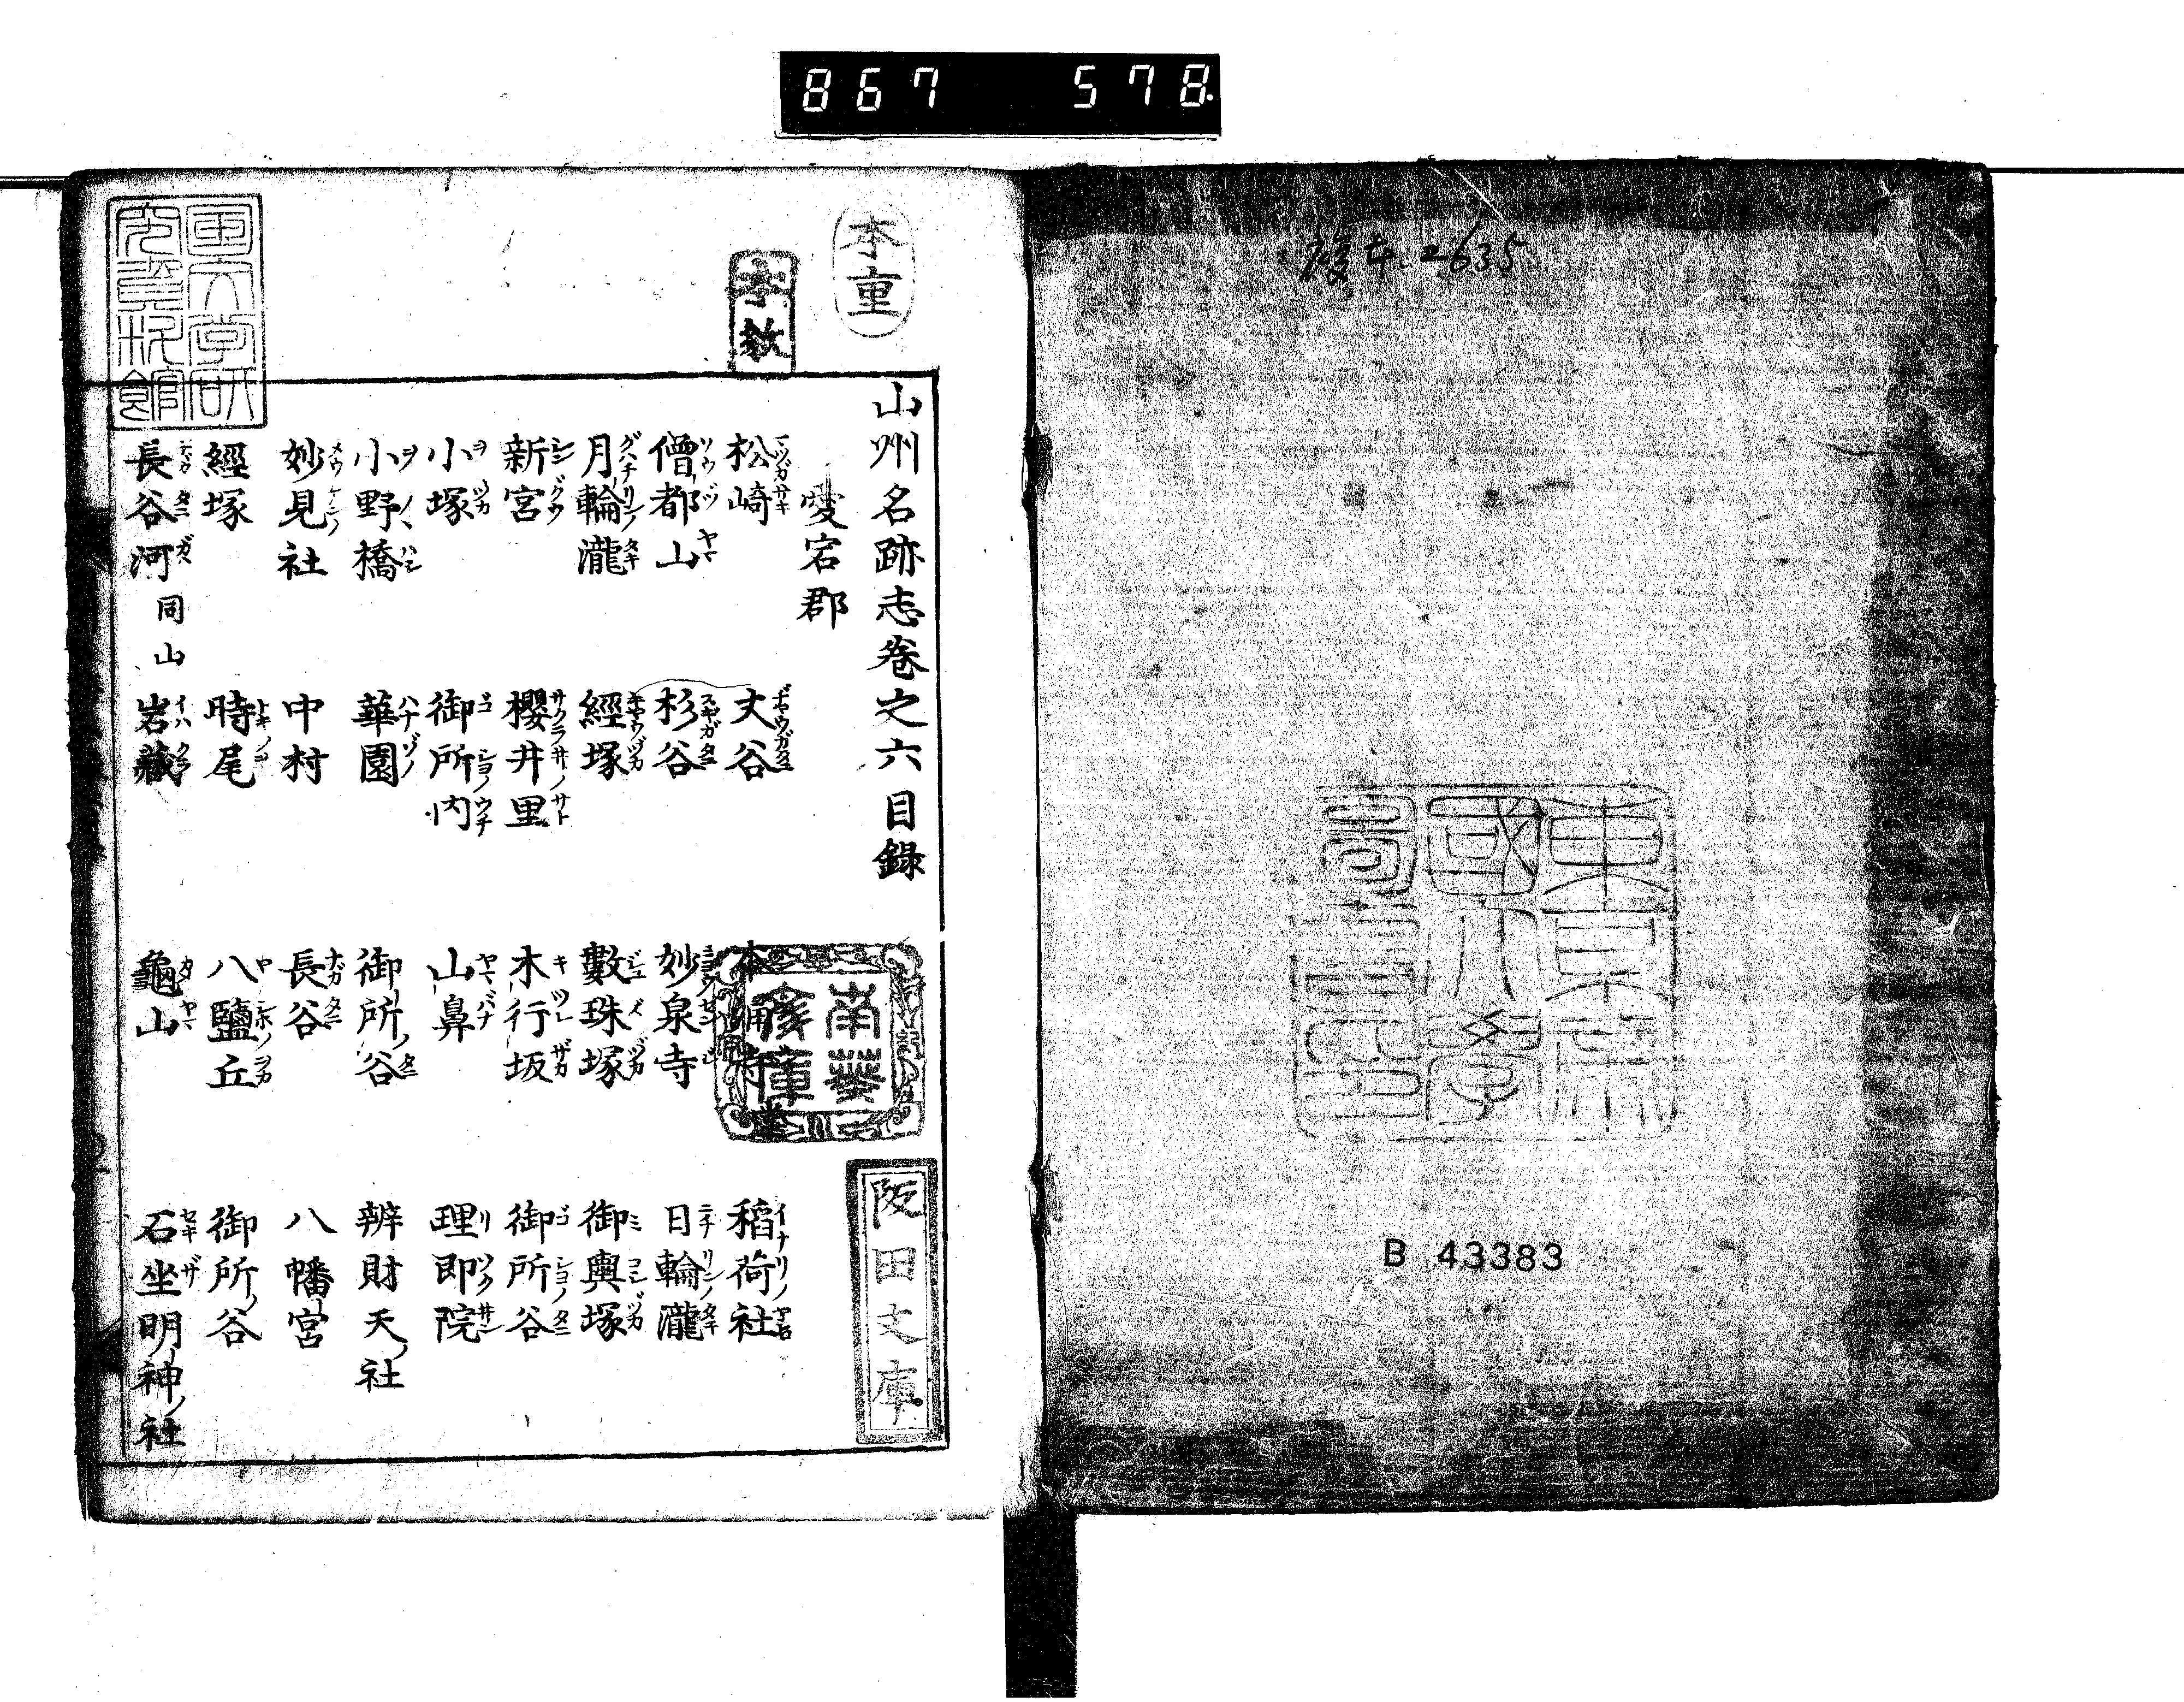 867 578
複本 2635
東京帝國大學
B 43383
本重
阪田文庫
山州名跡志卷之六目録
愛宕郡
松崎 丈谷 本涌寺 稻荷社
僧都山 杉谷 妙泉寺 日輪瀧
月輪瀧 經塚 數珠塚 御輿塚
新宮 櫻井里 木行坂 御所谷
小塚 御所内 山鼻 理即院
小野橋 華園 御所谷 辨財天社
妙見社 中村 長谷 八幡宮
經塚 時尾 八鹽丘 御所谷
長谷河 同山 岩藏 龜山 石坐明神社